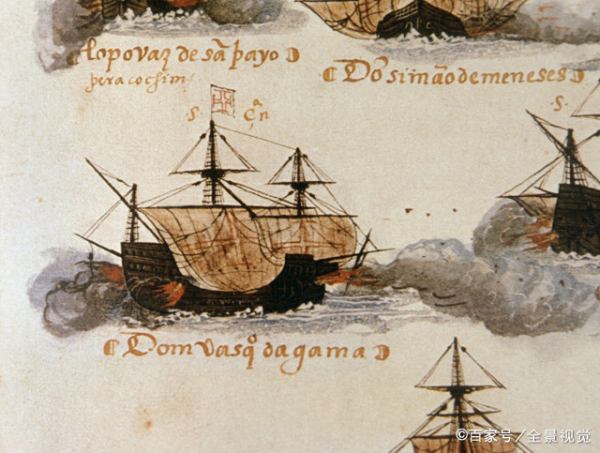 lopo vaz de sã payo
pera cochim
Dõ simão de meneses
S.
S. Cã n
Dom vasqo da gama
©百家号/全景视觉